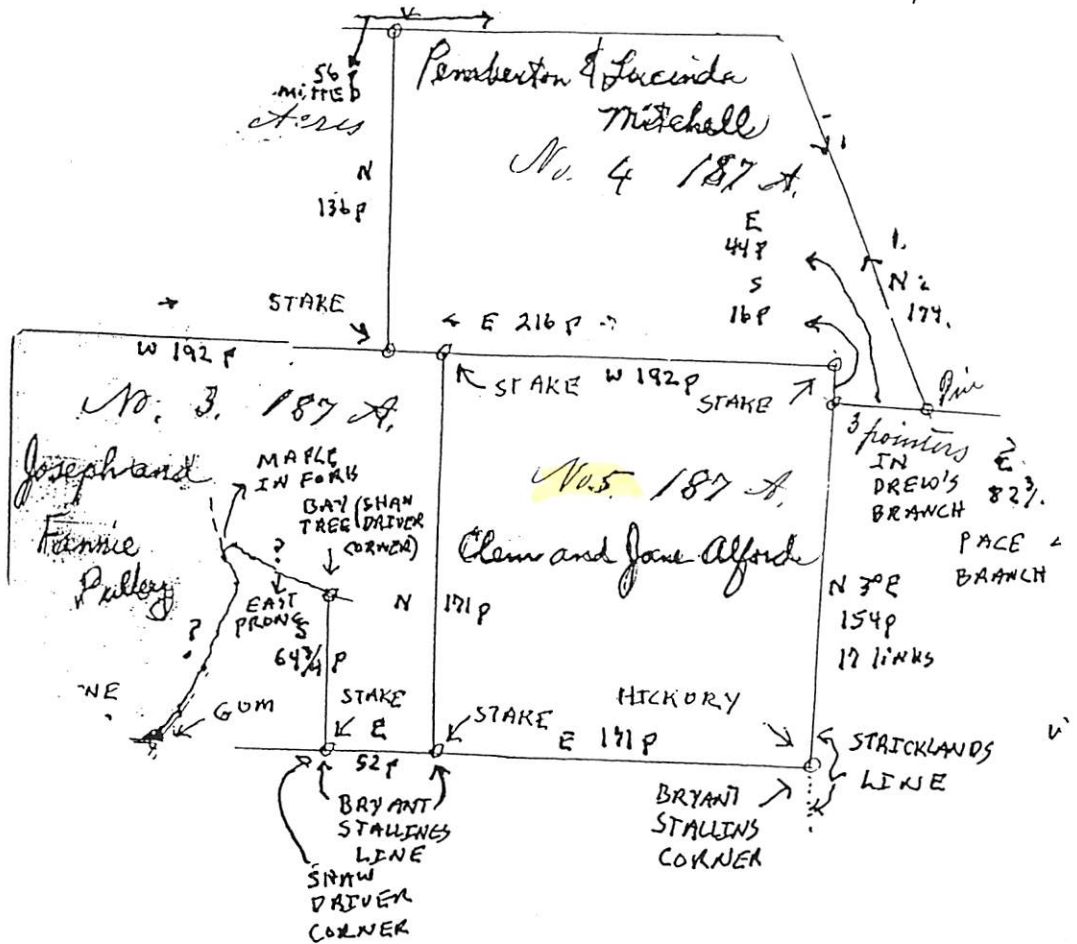 56 P
MITTED
Acres
Pemberton & Lucinda
Mitchell
No. 4 187 A.
N
136 P
E
44 P
S
16 P
1.
N 2
174.
STAKE
E 216 P
W 192 P
STAKE
W 192 P
STAKE
Pine
No. 3. 187 A.
Joseph and
Fannie
Pulley
MAPLE
IN FORK
BAY
TREE
(SHAW
DRIVER
CORNER)
?
EAST
PRONG
S
64 3/4 P
?
NE
GUM
No. 5. 187 A
Clem and Jane Alford
3 pointers
IN
DREW'S
BRANCH
E
82 3/
PACE
BRANCH
N
171 P
N 3° E
154 P
17 LINKS
STAKE
E
52 P
STAKE
HICKORY
E 171 P
STRICKLANDS
LINE
BRYANT
STALLINGS
LINE
SHAW
DRIVER
CORNER
BRYANT
STALLINS
CORNER